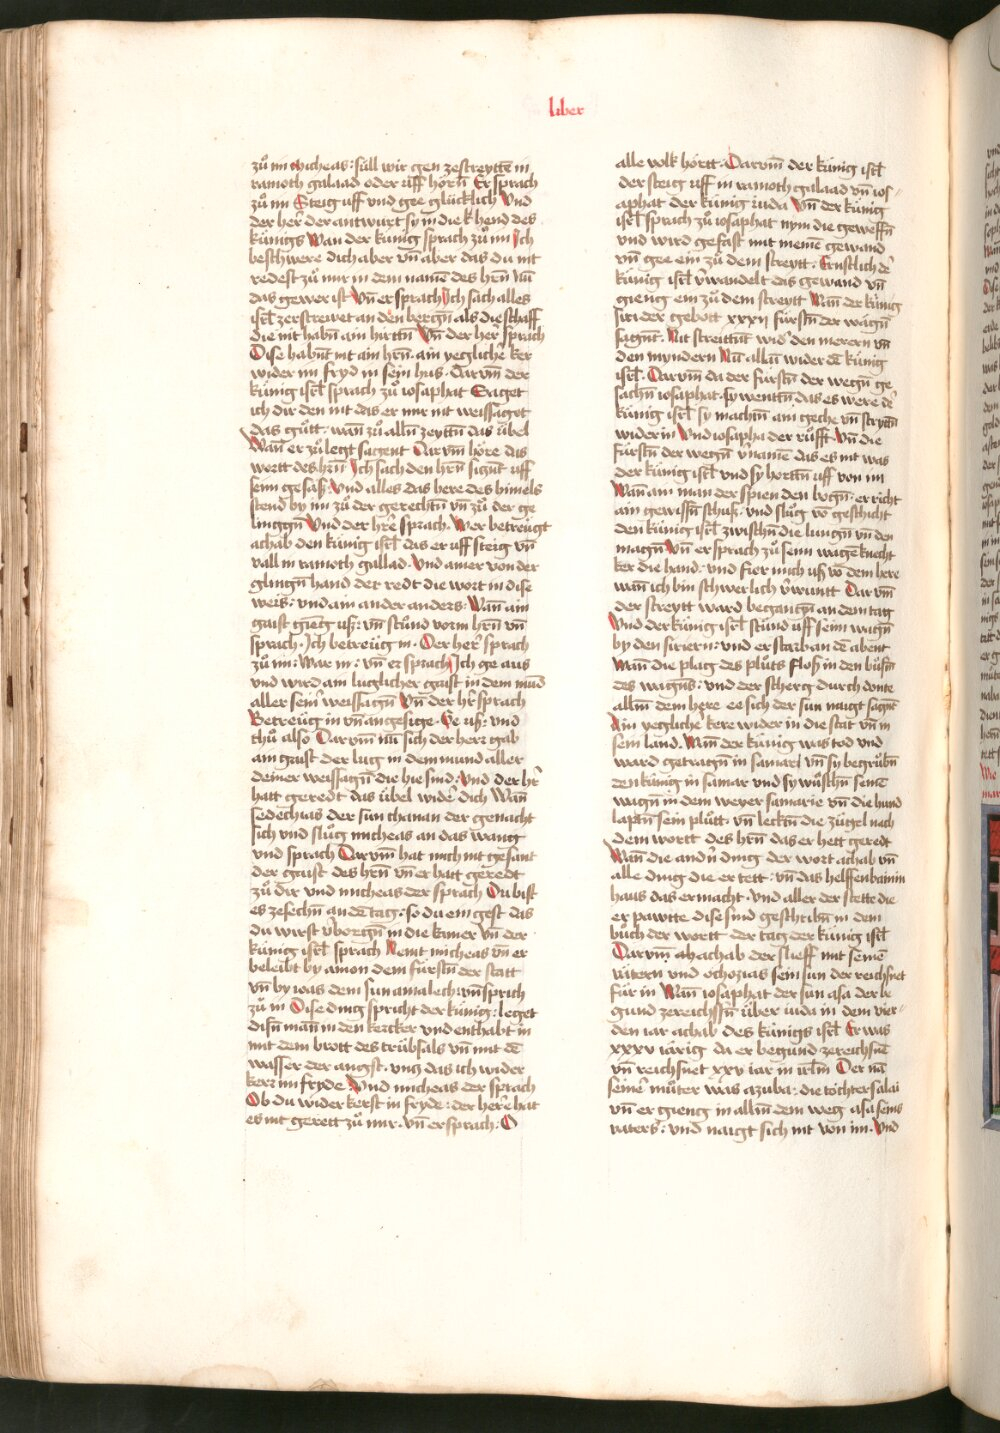 liber
zů im Micheas: súll wir gen zestreyttē in
ramoth galaad oder uff hörn̄ Er sprach
zů im Steig uff und gee glücklich Vnd
der her̄ der antwurt sy in die k hend des
künigs Wan der künig sprach zů im Ich
beschwere dich aber vn̄ aber das du nit
redest zů mir in dem name des hrn̄ nů
das gewer ist Vn̄ er sprach Ich sach alles
isrł zerstrewet an den bergn̄ als die schaff
die nit habn̄ ain hirttn̄ Vn̄ der her̄ sprach
Dise habn̄t nit ain hrn̄. ain yeglicher ker
wider im fryd in sein hus. Darvm̄ der
künig isrł sprach zů iosaphat Saget
ich dir den nit das er mir nit weissaget
das gůtt. wan̄ zů alln̄ zeyttn̄ das übel
Wan̄ er zů legt sagent Darvm̄ höre das
wort des hrn̄ Ich sach den hrn̄ siczn̄t uff
seim gesäsz. Vnd alles das here des himels
stend by im zů der gerechtn̄ vn̄ zů der ge
lincggn̄ Vnd der hrē sprach. Wer betreügt
achab den künig isrł das er uff steig vn̄
vall in ramoth galaad. Vnd ainer von der
glingn̄ hand der redt die wort in dise
weis: vnd ain ander anders. Wan̄ ain
gaist gieng usz: vn̄ stůnd vorm hrn̄ vn̄
sprach. Ich betreüg in. Der her̄ sprach
zů im: War in: vn̄ er sprach Ich ge aus
vnd wird ain luglicher gaist in dem mud̄
aller seinr̄ weissagn̄ Vn̄ der hr̄ sprach
Betreüg in vn̄ angesige. Ge usz: und
thů also Darvm̄ nů sich der herr gab
ain gaist der lug in dem mund aller
deiner weissagn̄ die hie sind: Vnd der hr̄
hatt geredt das übel wider̄ dich Wan̄
sedechias der sun chanan der genacht
sich vnd slůg micheas an das wang
vnd sprach Darvm̄ hat mich nit gesant
der gaist des hrn̄ vn̄ er hatt geredt
zů dir vnd micheas der sprach Du bist
es zesechn̄ an dē tag: so du ein gest das
du wirst v̄borgn̄ in die kamer vn̄ der
künig isrł sprach Nemt micheas vn̄ er
beleibt by amon dem fürstn̄ der statt
vn̄ by ioas dem sun amalech: vn̄ sprich
zů in Dise ding spricht der künig: leget
disn̄ man̄ in den kercker vnd enthabt in
mit dem brott des trübsals vn̄ mit dē
wasser der angst. vncz das ich wider
kerr im fryde. Vnd micheas der sprach
Ob du wider kerst in fryde: der herre hat
es nit gerett zů mir. vn̄ er sprach: O
alle volk hörtt. Darvm̄ der künig isrł
der steig uff in ramoth galaad vn̄ ios-
aphat der künig iuda Vn̄ der künig
isrł sprach zů iosaphat nym die geweffn̄
vnd wird gefast mit meinē gewand
vn̄ gee ein zů dem streytt. Ernstlich dē
künig isrł v̄wandelt das gewand vn̄
gieng ein zů dem streytt Wan̄ der künig
siri der gebott xxxij fürstn̄ der wägn̄
sagn̄t. Nit streittn̄t wid' den merern vn̄
den myndern Nů. allain wider dē künig
isrł. Darvm̄ da der fürstn̄ der wegn̄ ge
sachn̄ iosaphat. sy wentn̄ das es were dē
künig isrł sy machtn̄ ain geche vn̄ stryttn̄
wider in Vnd iosapha der růfft Vn̄ die
fürstn̄ der wegn̄ v̄name das es nit was
der künig isrł vnd sy hörttn̄ uff von im
Wan̄ ain man der spien den bogn̄: er richt
ain gewissn̄ schusz. vnd slůg vō geschicht
den künig isrł zwischn̄ die lungn̄ vn̄ den
magn̄ Vn̄ er sprach zů seim wagē knecht
ker die hand: vnd fier mich usz vō dem here
wan̄ ich bin schwerlich v̄wuntt Darvm̄
der streytt ward begangn̄ an dem tag
Vnd der künig isrł stůnd uff seim wagn̄
by den sirern: vnd er starb an dē abent
Wan̄ die plag des plůts flosz in den bůsn̄
des wagn̄s: vnd der scherg durch donte
allm̄ dem here ee sich der sun naigt sagn̄t
Ain yeglicher kere wider in die stat vn̄ in
sein land. Wan̄ der künig was tod vnd
ward getragn̄ in samari vn̄ sy begrůbn̄
den künig in samar vnd sy wůschn̄ seinē
wagn̄ in dem weyer samarie vn̄ die hund
laptn̄ sein plůtt. vn̄ lecktn̄ die zügel nach
dem wortt des hrn̄ das er hett geredt
Wan̄ die andn̄ ding der wort achab vn̄
alle ding die er tett: vn̄ das helffenbainin
haus das er macht. vnd aller der stette die
er pawtte dise sind geschribn̄ in dem
bůch der wortt der tag der künig isrł
Darvm̄ ahachab der slieff mit seinē
vätern vnd ochozias sein sun der reichsnet
für in Wan̄ iosaphat der sun asa der be
gund zereichssn̄ über iuda in dem vier-
den iar achab des künigs isrł Er was
xxxv iärig da er begund zereichsnē
vn̄ reichsnet xxv iar in irłm Der nā
seiner̄ můter was azuba. die tochter salai
vn̄ er gieng in allm̄ dem weg asa seins
vaters: vnd naigt sich nit von im. Vnd